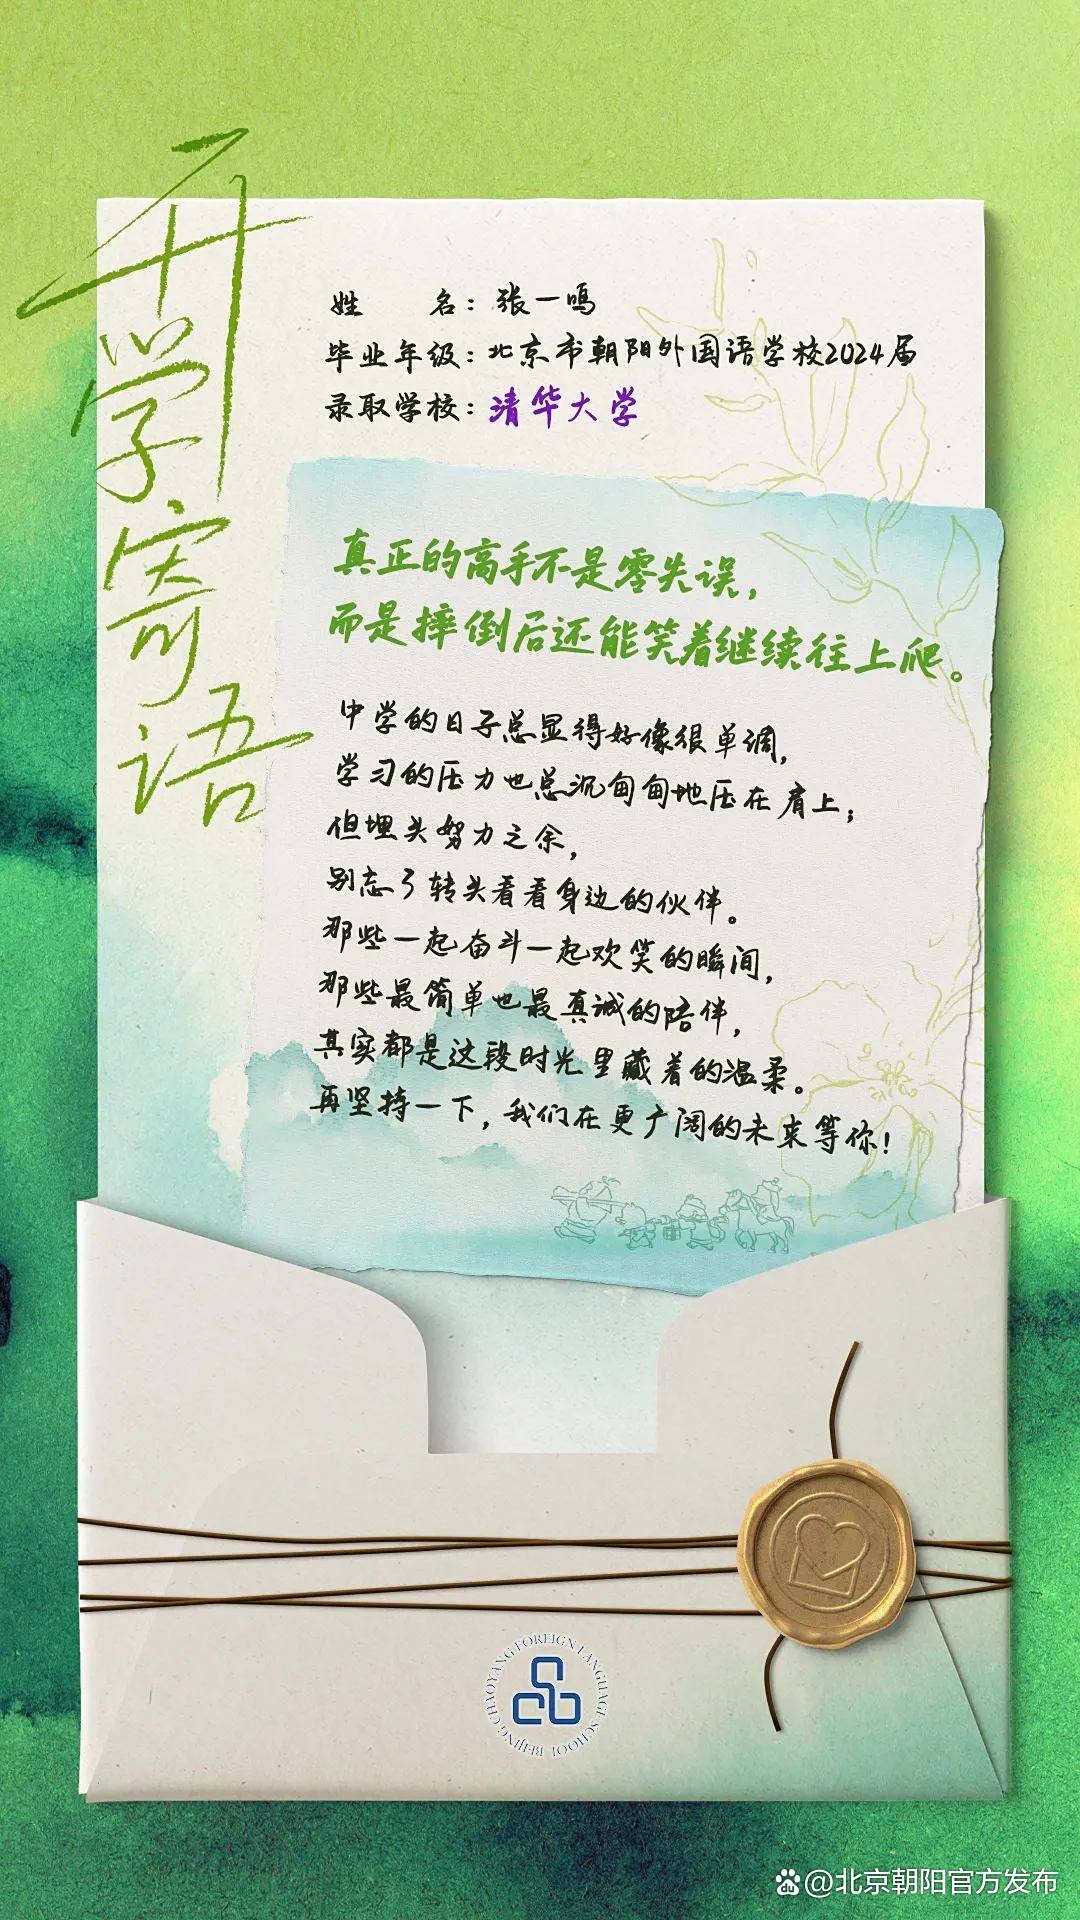 开学寄语
姓 名：张一鸣
毕业年级：北京市朝阳外国语学校2024届
录取学校：清华大学
真正的高手不是零失误，
而是摔倒后还能笑着继续往上爬。
中学的日子总显得好像很单调，
学习的压力也总沉甸甸地压在肩上；
但埋头努力之余，
别忘了转头看看身边的伙伴。
那些一起奋斗一起欢笑的瞬间，
那些最简单也最真诚的陪伴，
其实都是这段时光里藏着的温柔。
再坚持一下，我们在更广阔的未来等你！
BEIJING CHAOYANG FOREIGN LANGUAGE SCHOOL
@北京朝阳官方发布